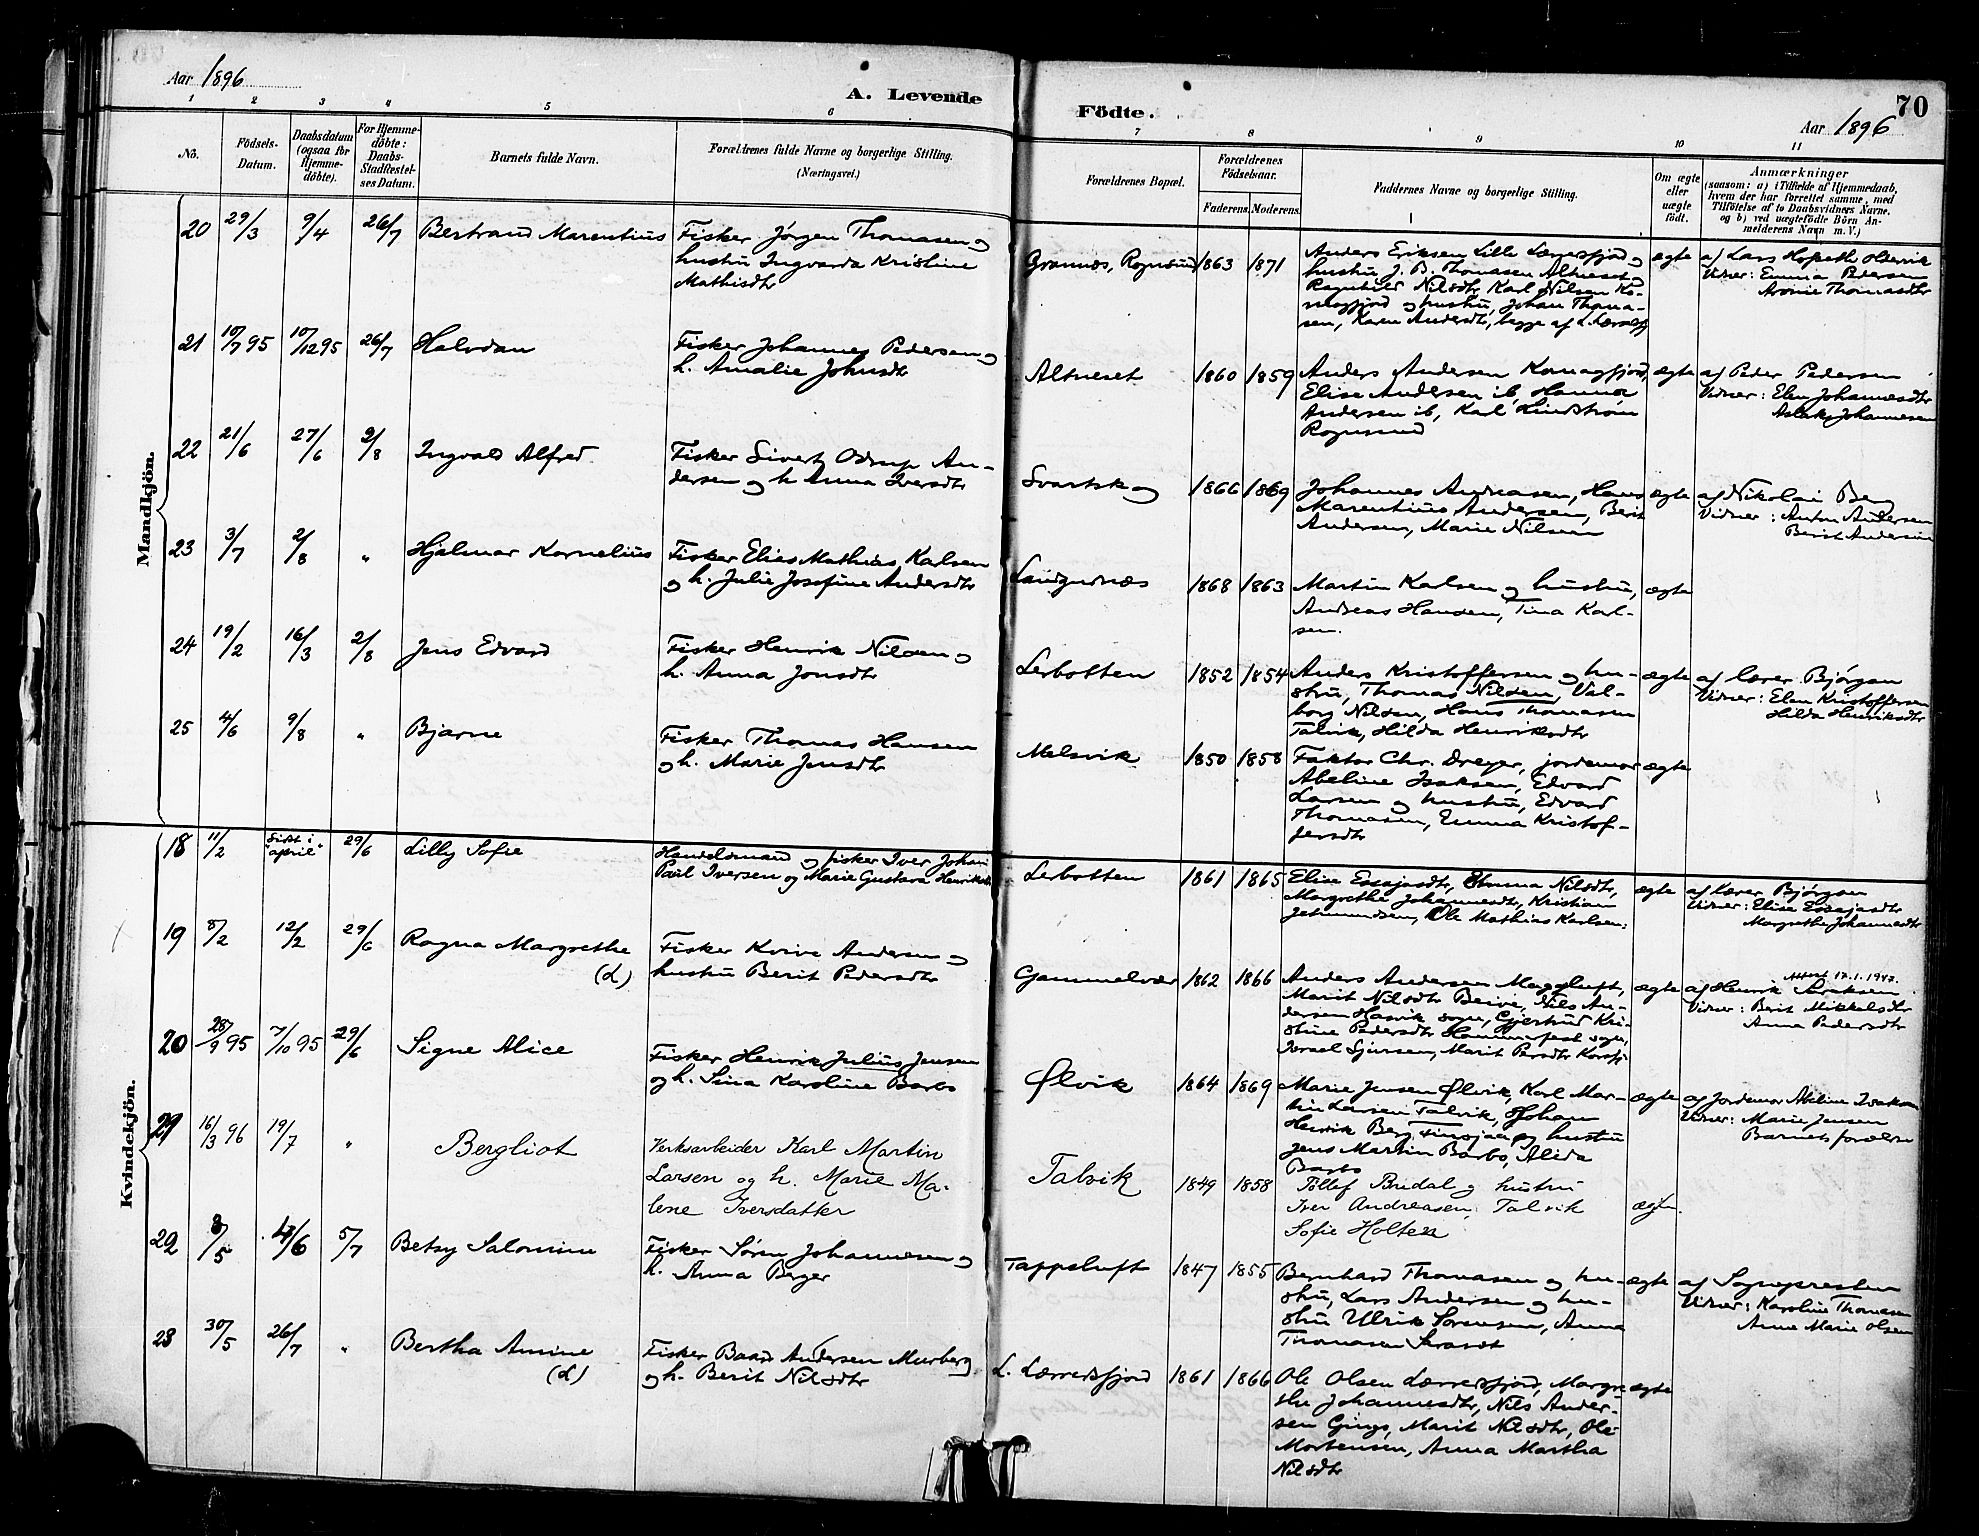 Aar 1896
A. Levende
Födte.
70
Aar 1896
1 2 3 4 5 6 7 8 9 10 11
No.
Födsels-Datum.
Daabsdatum (ogsaa for Hjemme-döbte).
For Hjemme-döbte: Daabs-Stadfæstel-ses Datum.
Barnets fulde Navn.
Forældrenes fulde Navne og borgerlige Stilling. (Næringsvei.)
Forældrenes Bopæl.
Forældrenes Födselsaar.
Faderens. Moderens.
Faddernes Navne og borgerlige Stilling.
Om ægte eller uægte födt.
Anmærkninger
(saasom: a) i Tilfælde af Hjemmedaab,
hvem der har forrettet samme, med
Tilföielse af to Daabsvidners Navne.
og b) ved uægtefödte Börn An-
melderens Navn m. V.)
Mandkjön.
20 29/3 9/4 26/7 Bertrand Marentius
Fisker Jørgen Thomasen og
hustru Ingvarda Kristine
Mathisdtr
Rognsund 1863 1871
Anders Eriksen Lille Lærresfjord og
hustru, J. B. Thomasen Altneset,
Ragnhild Nilsdtr, Karl Nilsen Ko-
magfjord og hustru, Johan Thoma-
sen, Karen Andersdtr, begge af L. Lærresfj
ægte
af Lars
Vidner: Emma Pedersen
Thomasdtr
21 10/7 95 10/12 95 26/7 Halvdan
Fisker Johannes Pedersen og
h. Amalie Johnsdtr
Altneset 1860 1859
Anders Andersen Komagfjord,
Elise Andersen ib, Hanna
Andersen ib, Karl Lindstrøm
Rognsund
ægte
af Peder Pedersen
Vidner: Elen Johannesdtr
Aslak Johannesen
22 21/6 27/6 2/8 Ingvald Alfred
Fisker Sivert Odrup An-
dersen og h Anna Iversdtr
Svartskog 1866 1869
Johannes Andreasen, Hans
Marentius Andersen, Berit
Andersen, Marie Nilsen
ægte
af Nikolai Berg
Vidner: Anton Andersen
Berit Andersen
23 3/7 2/8 " Hjalmar Kornelius
Fisker Elias Mathias Karlsen
og h. Julie Josefine Andersdtr
1868 1863
Martin Karlsen og hustru,
Andreas Hansen, Tina Karl-
sen.
ægte
24 19/2 16/3 2/8 Jens Edvard
Fisker Henrik Nilsen og
h. Anna Jonsdtr
Lerbotten 1852 1854
Anders Kristoffersen og hu-
stru, Thomas Nilsen, Val-
borg Nilsen, Hans Thomasen
Talvik, Hilda Henriksdtr
ægte
af lærer Bjørgan
Vidner: Elen Kristoffersen
Hilda Henriksdtr
25 4/6 9/8 " Bjarne
Fisker Thomas Hansen
og h. Marie Jensdtr
Melsvik 1850 1858
Faktor Chr. Dreyer, jordemor
Abeline Isaksen, Edvard
Larsen og hustru, Edvard
Thomasen, Emma Kristof-
fersdtr
ægte
Kvindekjön.
18 11/2 sidst i "april" 29/6 Lilly Sofie
Handelsmand og fisker Iver Johan
Paul Iversen og Marie Gustava Henriksdtr
Lerbotten 1861 1865
Elise Essajasdtr, Emma Nilsdtr,
Margrethe Johannesdtr, Kristian
Jetmundsen, Ole Mathias Karlsen.
ægte
af Lærer Bjørgan
Vidner: Elise Essajasdtr
Margrethe Johannesdtr
19 8/2 12/2 29/6 Ragna Margrethe
(L)
Fisker Andersen og
hustru Berit Pedersdtr
Gammelvær 1862 1866
Anders Andersen Mageluft,
Marit Nilsdtr Beivi, Nils An-
dersen Hasvik sogn, Gjertrud Kri-
stine Pedersdtr Hammerfest sogn,
Israel Sjursen, Marit Persdtr Korsfj
ægte
Attest 17.1.1947.
af Henrik
Vidner: Berit Mikkelsdtr
Anna Pedersdtr
20 28/9 95 7/10 95 29/6 Signe Alice
Fisker Henrik Julius Jensen
og h. Sina Karoline Barbo
Ølvik 1864 1869
Marie Jensen Ølvik, Karl Mar-
tin Larsen Talvik, Johan
Henrik Berg og hustru
Jens Martin Barbo, Alida
Barbo
ægte
af Jordemor Abeline Isaksen
Vidner: Marie Jensen
Barnets forældre
21 16/3 96 19/7 " Bergliot
Verksarbeider Karl Martin
Larsen og h. Marie Ma-
lene Iversdatter
Talvik 1849 1858
Tollef Bredal og hustru
Iver Andreasen, Talvik
Sofie Holten
ægte.
22 8/5 4/6 5/7 Betsy Salomine
Fisker Søren Johannesen og
h. Anna Berger
Tappeluft 1847 1855
Bernhard Thomasen og hu-
stru, Lars Andersen og hu-
stru Ulrik Sørensen, Anna
Thomasen
ægte
af Sognepresten
Vidner: Karoline Thomasen
Anne Marie Olsen
23 30/5 26/7 " Bertha Amine
(L)
Fisker Baard Andersen Murberg
og h. Berit Nilsdtr
L. Lærresfjord 1861 1866
Ole Olsen Lærresfjord, Margre-
the Johannesdtr, Nils Ander-
sen, Marit Nilsdtr, Ole
Mortensen, Anna Martha
Nilsdtr
ægte